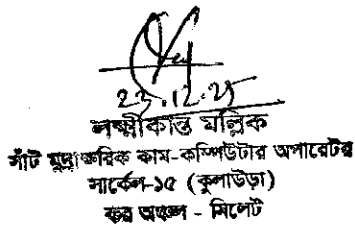 23.12.25
লক্ষ্মীকান্ত মল্লিক
সাঁট মুদ্রাক্ষরিক কাম-কম্পিউটার অপারেটর
সার্কেল-১৫ (কুলাউড়া)
কর অঞ্চল - সিলেট